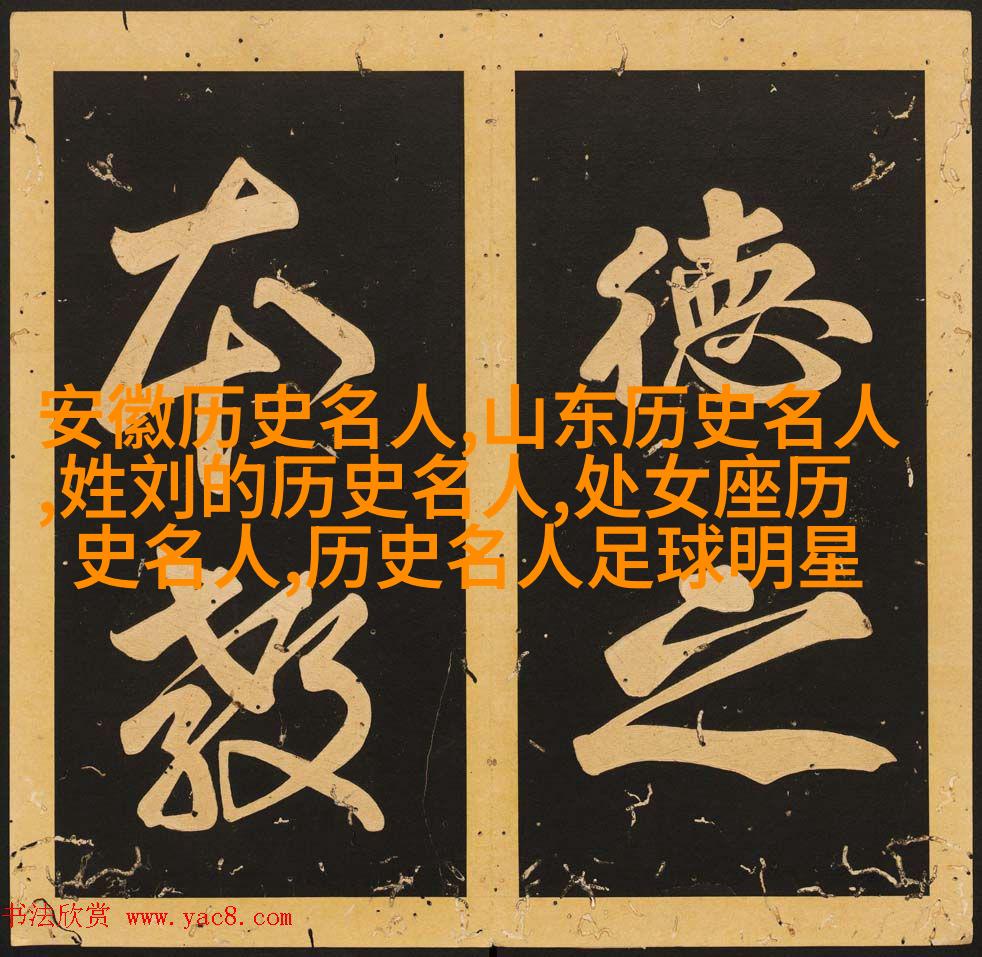 德之
本教
安徽历史名人,山东历史名人
,姓刘的历史名人,处女座历
史名人,历史名人足球明星
书法欣赏 www.yac8.com